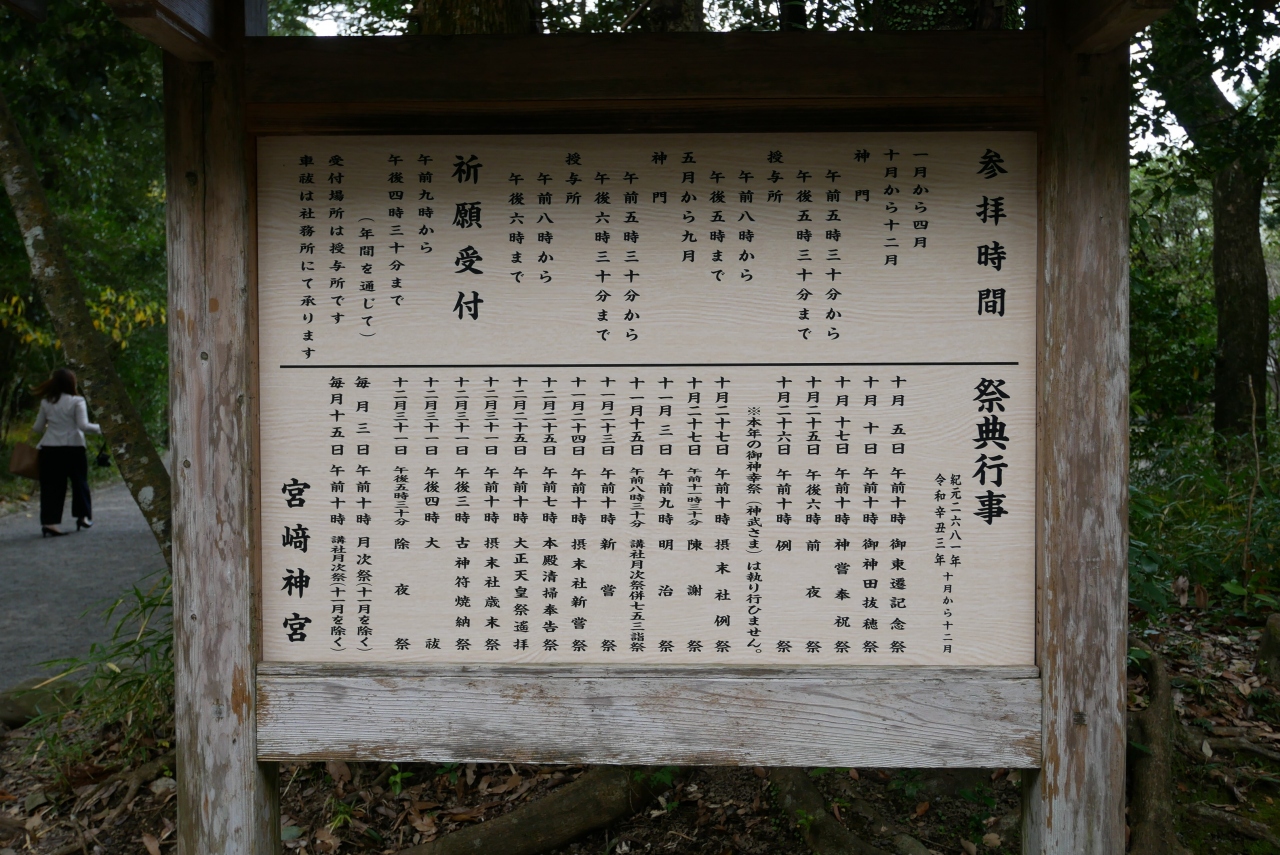 参拝時間
一月から四月
十月から十二月
神門
午前五時三十分から
午後五時三十分まで
授与所
午前八時から
午後五時まで
五月から九月
神門
午前五時三十分から
午後六時三十分まで
授与所
午前八時から
午後六時まで
祈願受付
午前九時から
午後四時三十分まで
（年間を通じて）
受付場所は授与所です
車祓は社務所にて承ります
祭典行事
紀元二六八一年
令和辛丑三年
十月から十二月
十月 五日 午前十時 御東遷記念祭
十月 十日 午前十時 御神田抜穂祭
十月 十七日 午前十時 神嘗奉祝祭
十月二十五日 午後六時 前夜祭
十月二十六日 午前十時 例祭
※本年の御神幸祭（神武さま）は執り行ひません。
十月二十七日 午前十時 摂末社例祭
十月二十七日 午前十一時三十分 陳謝祭
十一月三日 午前九時 明治祭
十一月十五日 午前八時三十分 講社月次祭併七五三詣祭
十一月二十三日 午前十時 新嘗祭
十一月二十四日 午前十時 摂末社新嘗祭
十二月二十五日 午前七時 本殿清掃奉告祭
十二月二十五日 午前十時 大正天皇祭遙拝
十二月三十一日 午前十時 摂末社歳末祭
十二月三十一日 午後三時 古神符焼納祭
十二月三十一日 午後四時 大祓
十二月三十一日 午後五時三十分 除夜祭
毎月三日 午前十時 月次祭（十一月を除く）
毎月十五日 午前十時 講社月次祭（十一月を除く）
宮﨑神宮